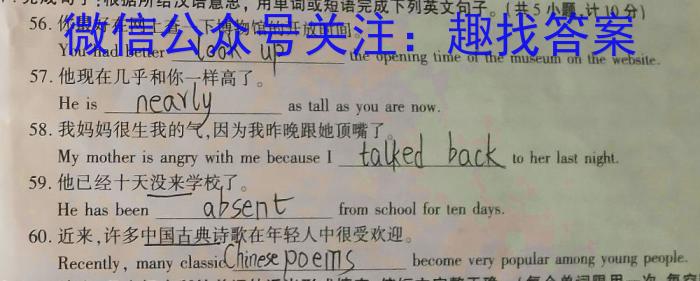 完成句子:根据所给汉语意思,用单词或短语完成下列英文句子。(共5小题,计10分)
微信公众号关注:趣找答案
56.
You had better look up the opening time of the museum on the website.
57.他现在几乎和你一样高了。
He is nearly as tall as you are now.
58.我妈妈很生我的气,因为我昨晚跟她顶嘴了。
My mother is angry with me because I talked back to her last night.
59.他已经十天没来学校了。
He has been absent from school for ten days.
60.近来,许多中国古典诗歌在年轻人中很受欢迎。
Recently, many classic Chinese poems become very popular among young people.